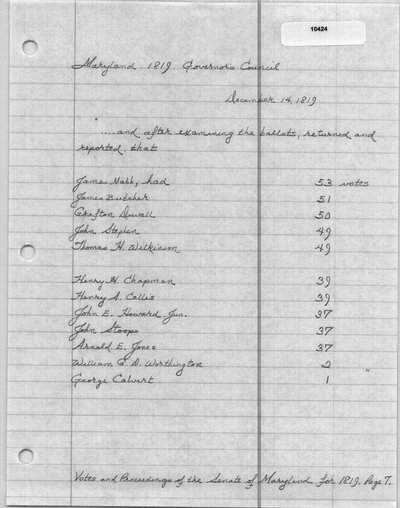 10424
Maryland 1819 Governor's Council
December 14, 1819
"....and after examining the ballots, returned and
reported, that
James Nabb, had 53 votes
James Butcher 51
Grafton Duvall 50
John Stephen 49
Thomas H. Wilkinson 49
Henry H. Chapman 39
Henry A. Callis 39
John E. Howard Jun. 37
John Stoops 37
Arnold E. Jones 37
William G. D. Worthington 2
George Calvert 1 "
Votes and Proceedings of the Senate of Maryland for 1819. Page 7.